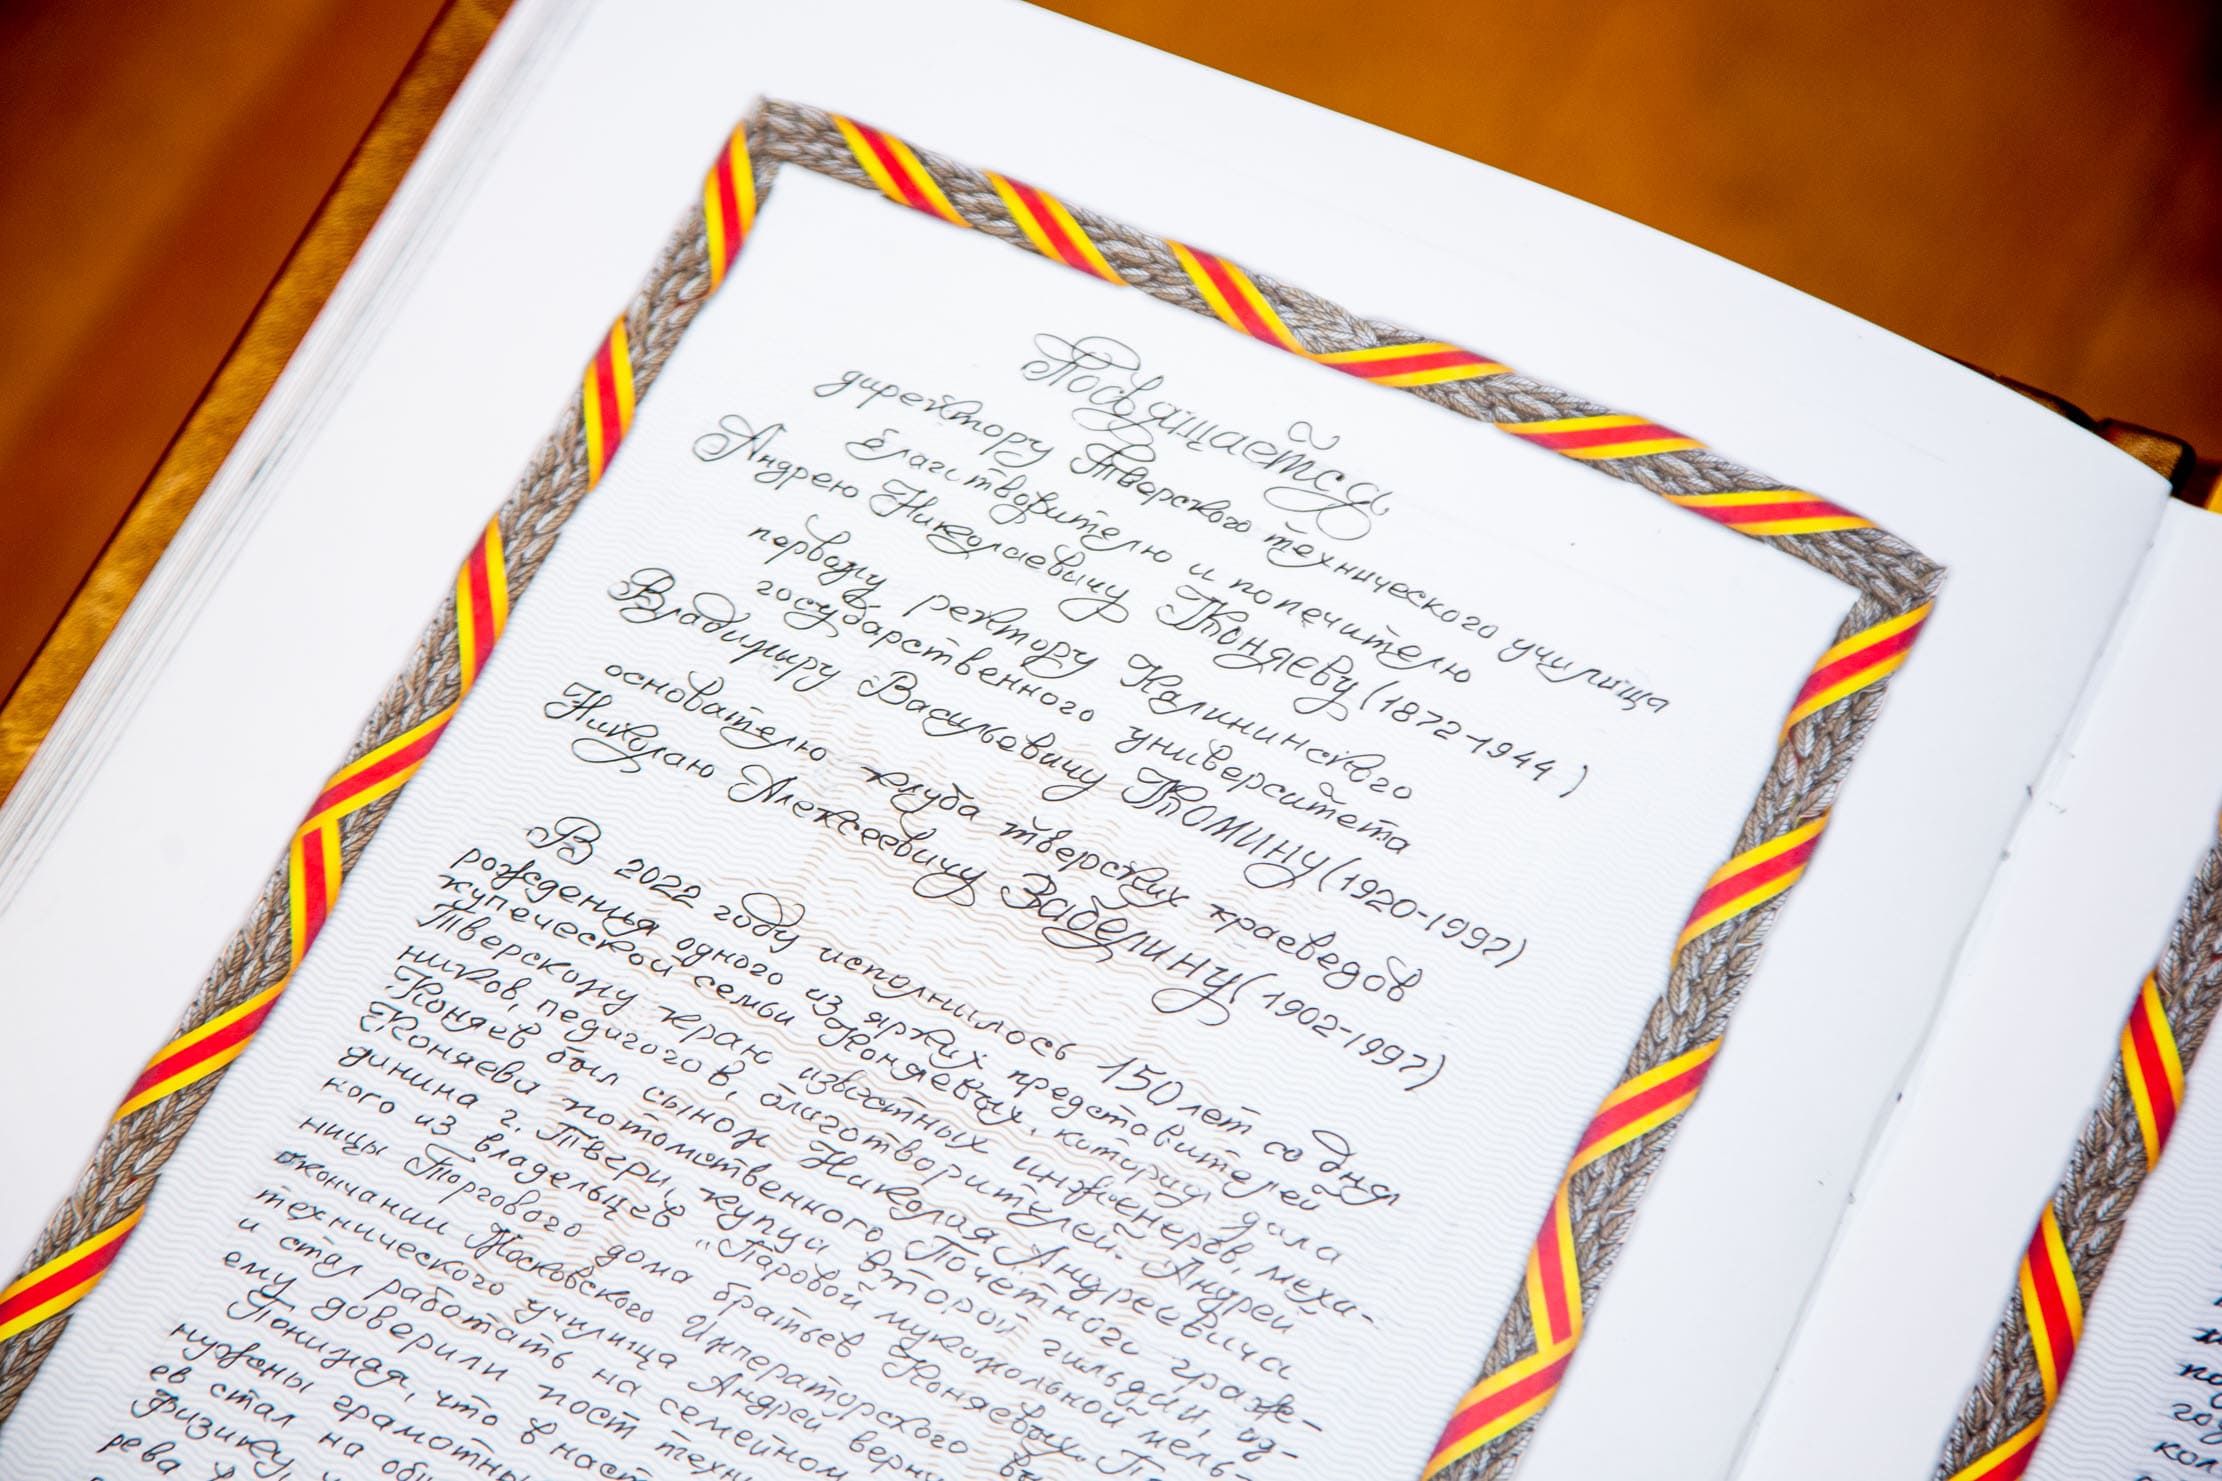 Посвящается
директору Тверского технического училища
благотворителю и попечителю
Андрею Николаевичу Коняеву (1872-1944)
первому ректору Калининского
государственного университета
Владимиру Васильевичу Комину (1920-1997)
основателю клуба тверских краеведов
Николаю Алексеевичу Забелину (1902-1997)
В 2022 году исполнилось 150 лет со дня
рождения одного из ярких представителей
купеческой семьи Коняевых, которая дала
Тверскому краю известных инженеров, меха-
ников, педагогов, благотворителей - Андрей
Коняев был сыном Николая Андреевича
Коняева потомственного Почетного граж-
данина г. Твери, купца второй гильдии, од-
ного из владельцев "Паровой мукомольной мель-
ницы Торгового дома братьев Коняевых". По
окончании Московского Императорского вы
технического училища Андрей верну
и стал работать на семейном
ему доверили пост техни
Понимая, что в наст
нужны грамотны
ев стал на общ
физику,
рева